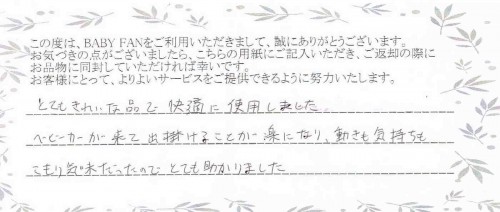 この度は、BABY FANをご利用いただきまして、誠にありがとうございます。
お気づきの点がございましたら、こちらの用紙にご記入いただき、ご返却の際に
お品物に同封していただければ幸いです。
お客様にとって、よりよいサービスをご提供できるように努力いたします。
とてもきれいな品で快適に使用しました。
ベビーカーが来て出掛けることが楽になり、動きも気持ちも
こもり気味だったのでとても助かりました